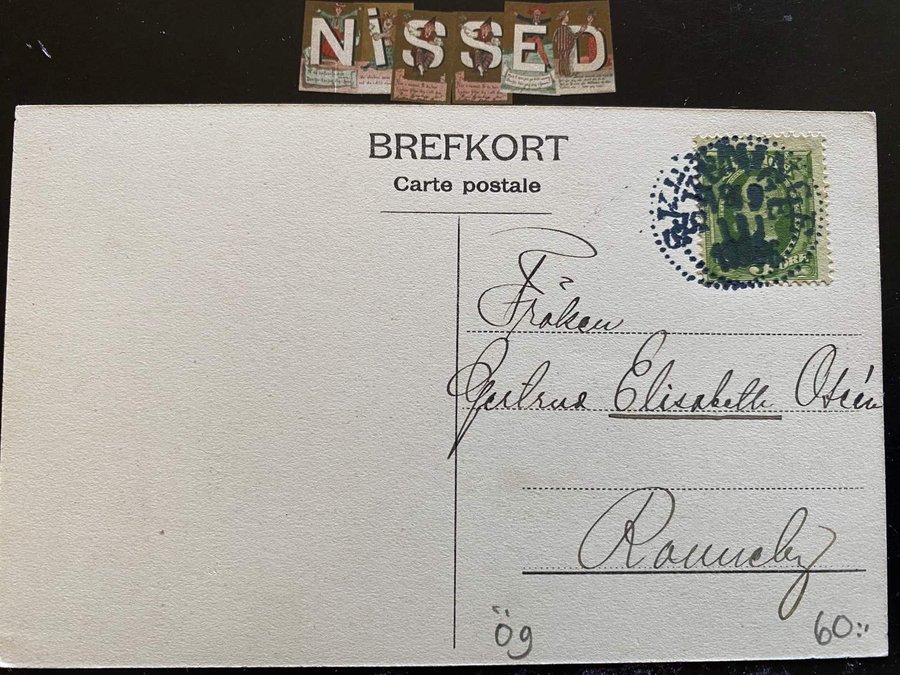 NiSSED
BREFKORT
Carte postale
Fröken
Gertrud Elisabeth Osién
Ronneby
ÖG
60: